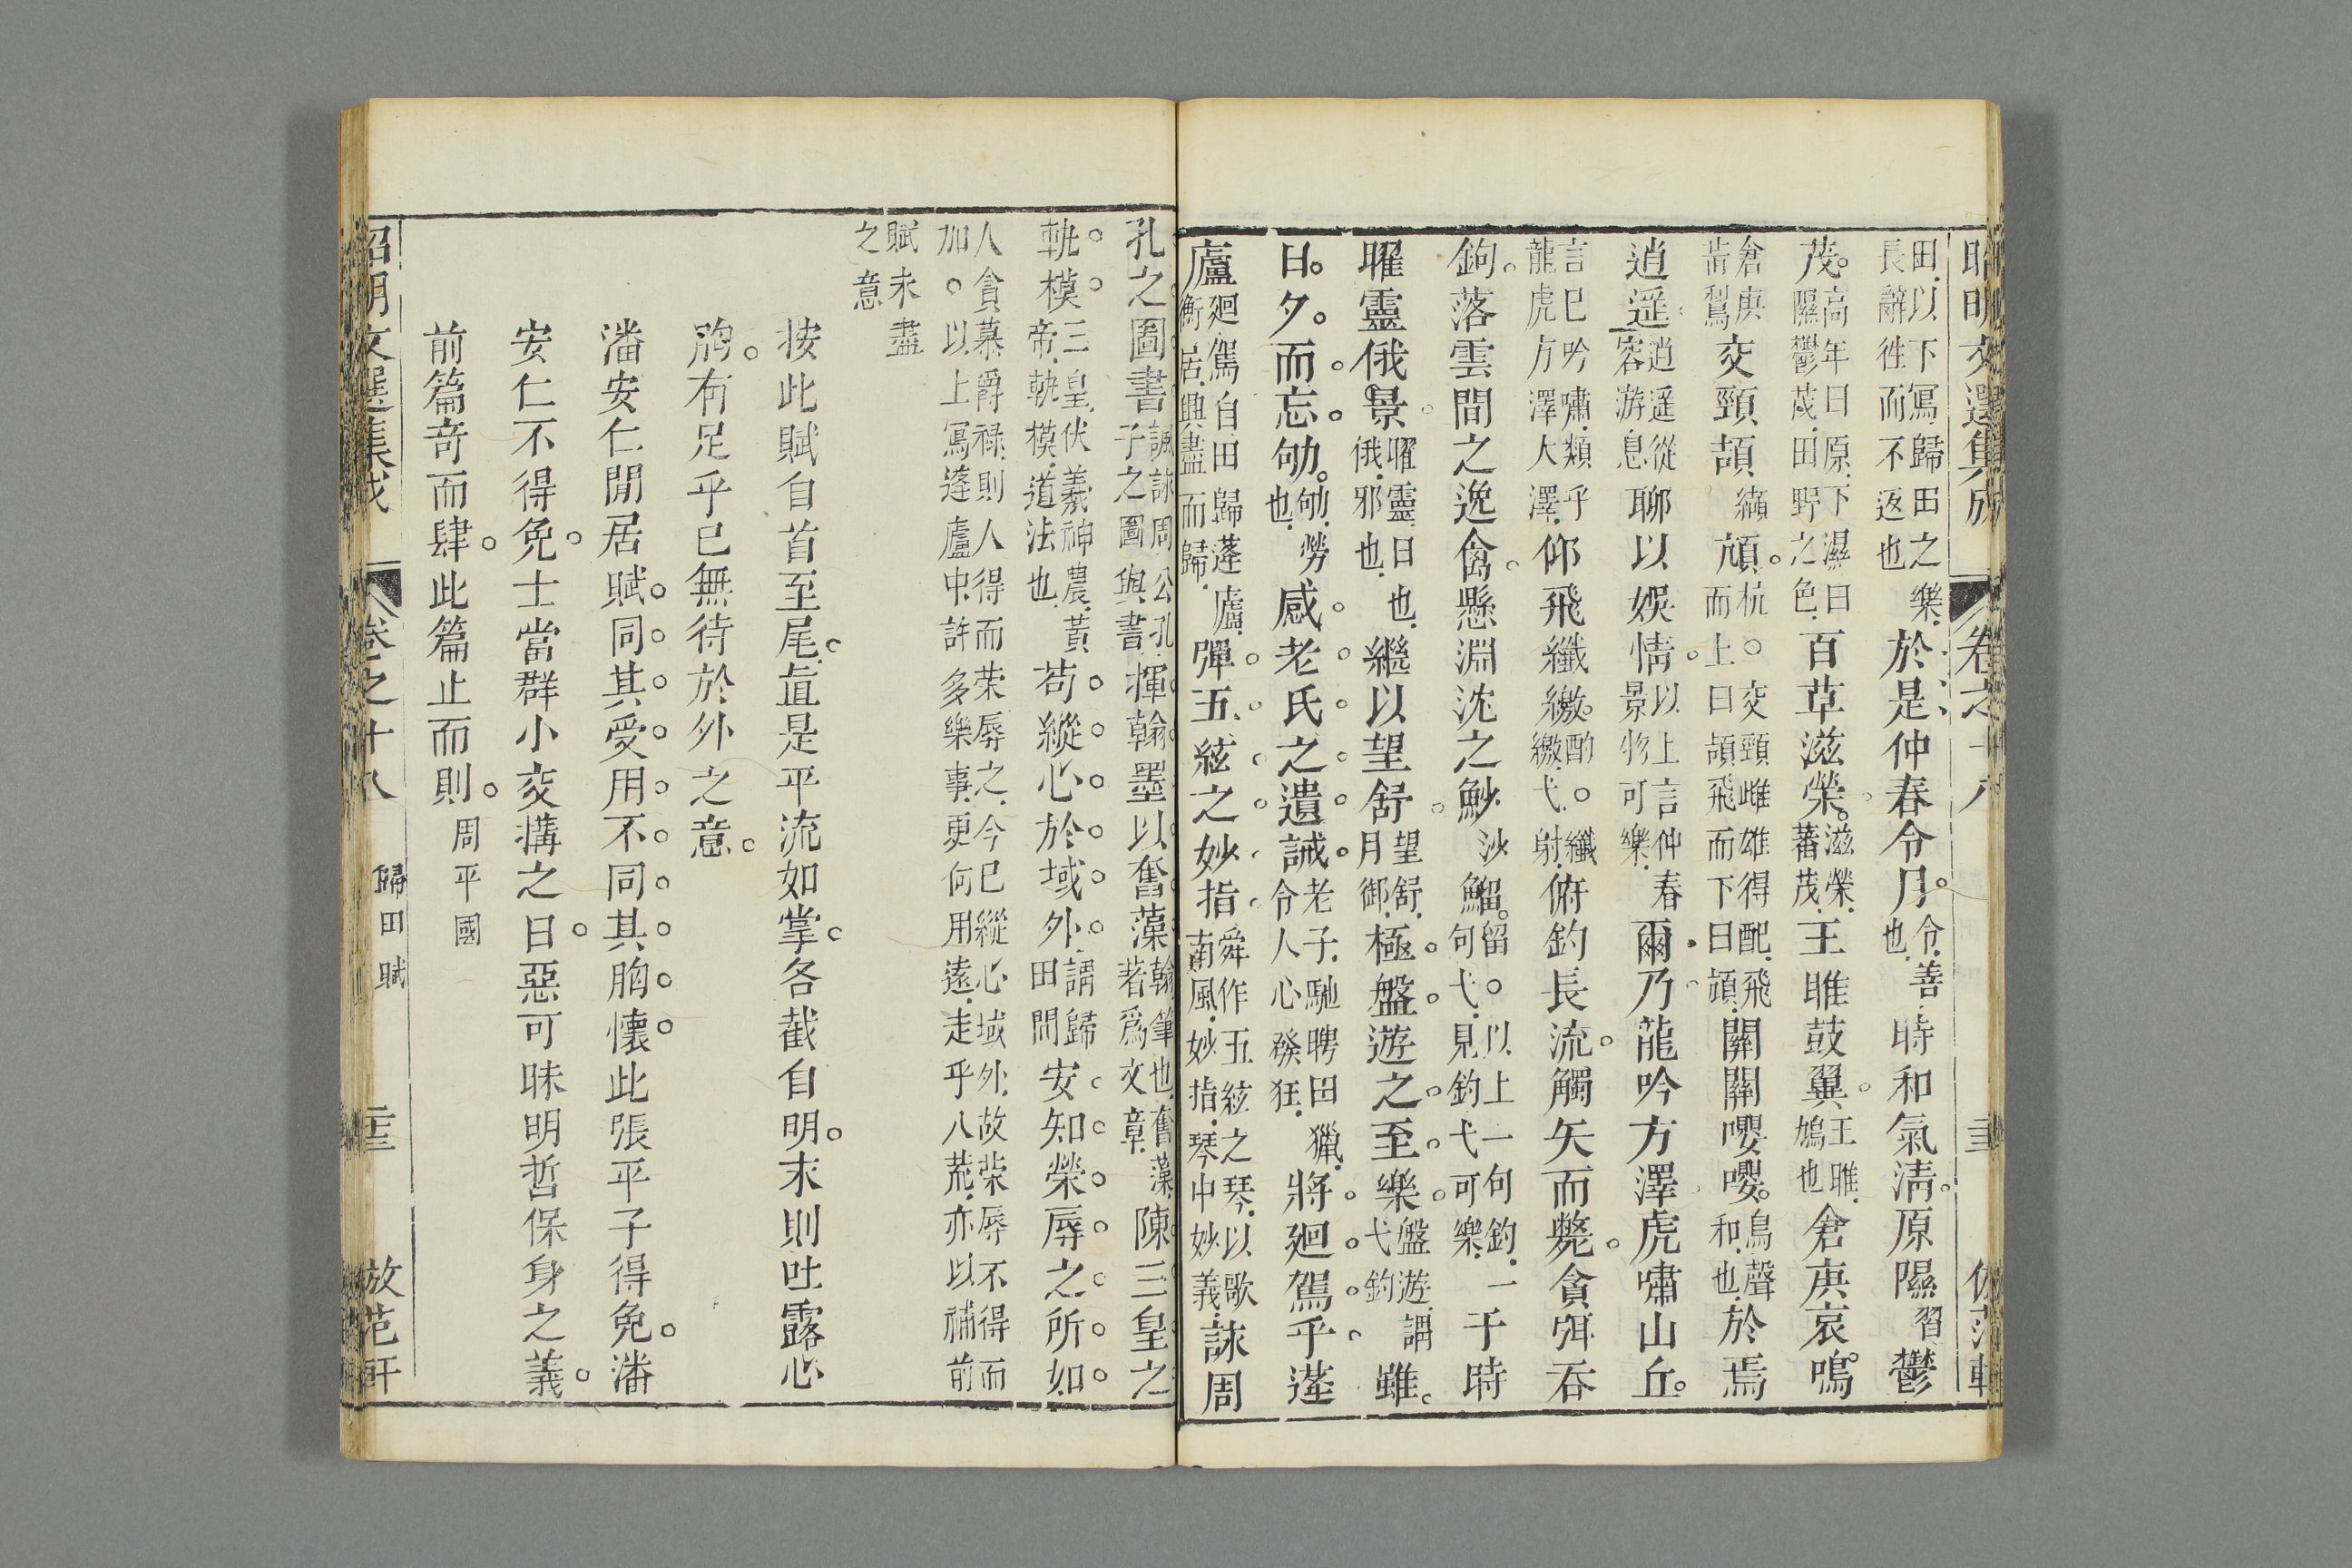 昭明文選集成 卷之十八 倣范軒
田以下冩歸田之樂
長辭徃而不返也
於是仲春令月
令善
也
時和氣清原隰
習
鬱
茂
高年曰原下濕曰
隰鬱茂田野之色
百草滋榮
滋榮
蕃茂
王雎鼓翼
王雎
鳩也
倉庚哀鳴
倉庚
黃鸝
交頸頡
纈
頏
杭○交頸雌雄得配飛
而上曰頡飛而下曰頏
關關嚶嚶
鳥聲
和也
於焉
逍遥
逍遥從
容游息
聊以娛情
以上言仲春
景物可樂
爾乃龍吟方澤虎嘯山丘
言已吟嘯類乎
龍虎方澤大澤
仰飛纖繳
酌○纖
繳弋射
俯釣長流觸矢而斃貪餌吞
鉤落雲間之逸禽懸淵沈之魦
沙
鰡
留○以上一句釣一
句弋見釣弋可樂
于時
曜靈俄景
曜靈日也
俄邪也
繼以望舒
望舒
月御
極盤遊之至樂
盤遊謂
弋釣
雖
日夕而忘劬
劬勞
也
感老氏之遺誡
老子馳聘田獵
令人心發狂
將廻駕乎蓬
廬
廻駕自田歸蓬廬
衡居興盡而歸
彈五絃之妙指
舜作五絃之琴以歌
南風妙指琴中妙義
詠周
孔之圖書
諷詠周公孔
子之圖與書
揮翰墨以奮藻
翰筆也奮藻
著爲文章
陳三皇之
軌模
三皇伏羲神農黃
帝軌模道法也
苟縱心於域外
謂歸
田間
安知榮辱之所如
人貪慕爵禄則人得而荣辱之今已縱心域外故荣辱不得而
加○以上冩蓬廬中許多樂事更何用遠走乎八荒亦以補前
賦未盡
之意
按此賦自首至尾直是平流如掌各截自明末則吐露心
胸有足乎已無待於外之意
潘安仁閒居賦同其受用不同其胸懷此張平子得免潘
安仁不得免士當群小交搆之日惡可昧明哲保身之義
前篇奇而肆此篇止而則
周平國
昭明文選集成 卷之十八 歸田賦 放范軒